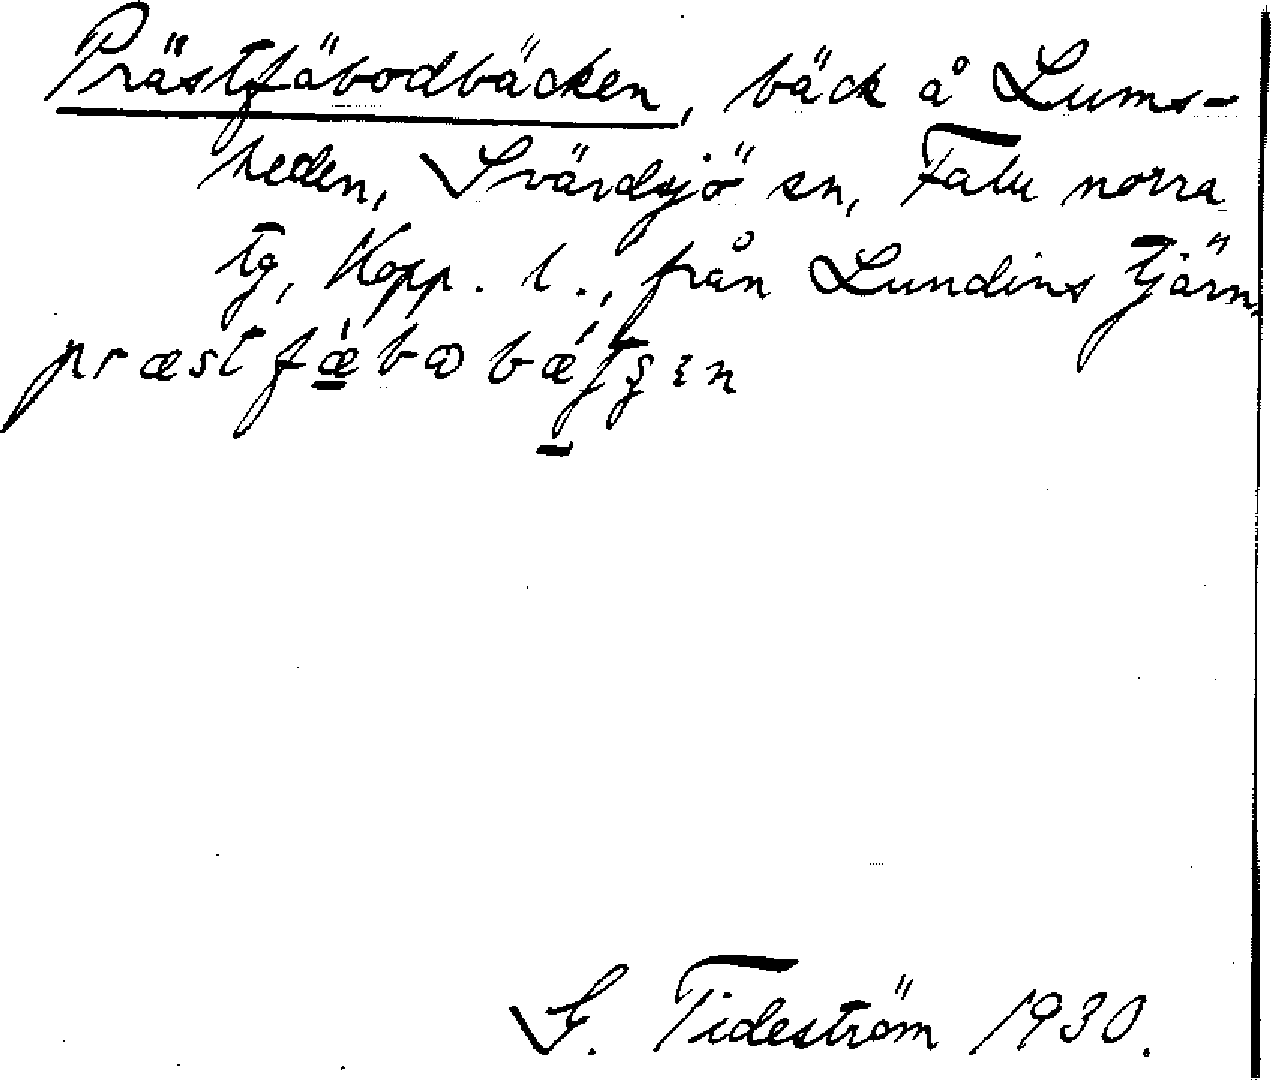 Prästfäbodbäcken, bäck å Lums-
heden, Svärdsjö sn, Falu norra
tg, Kopp. l., från Lundins tjärn.
S. Tideström 1930.